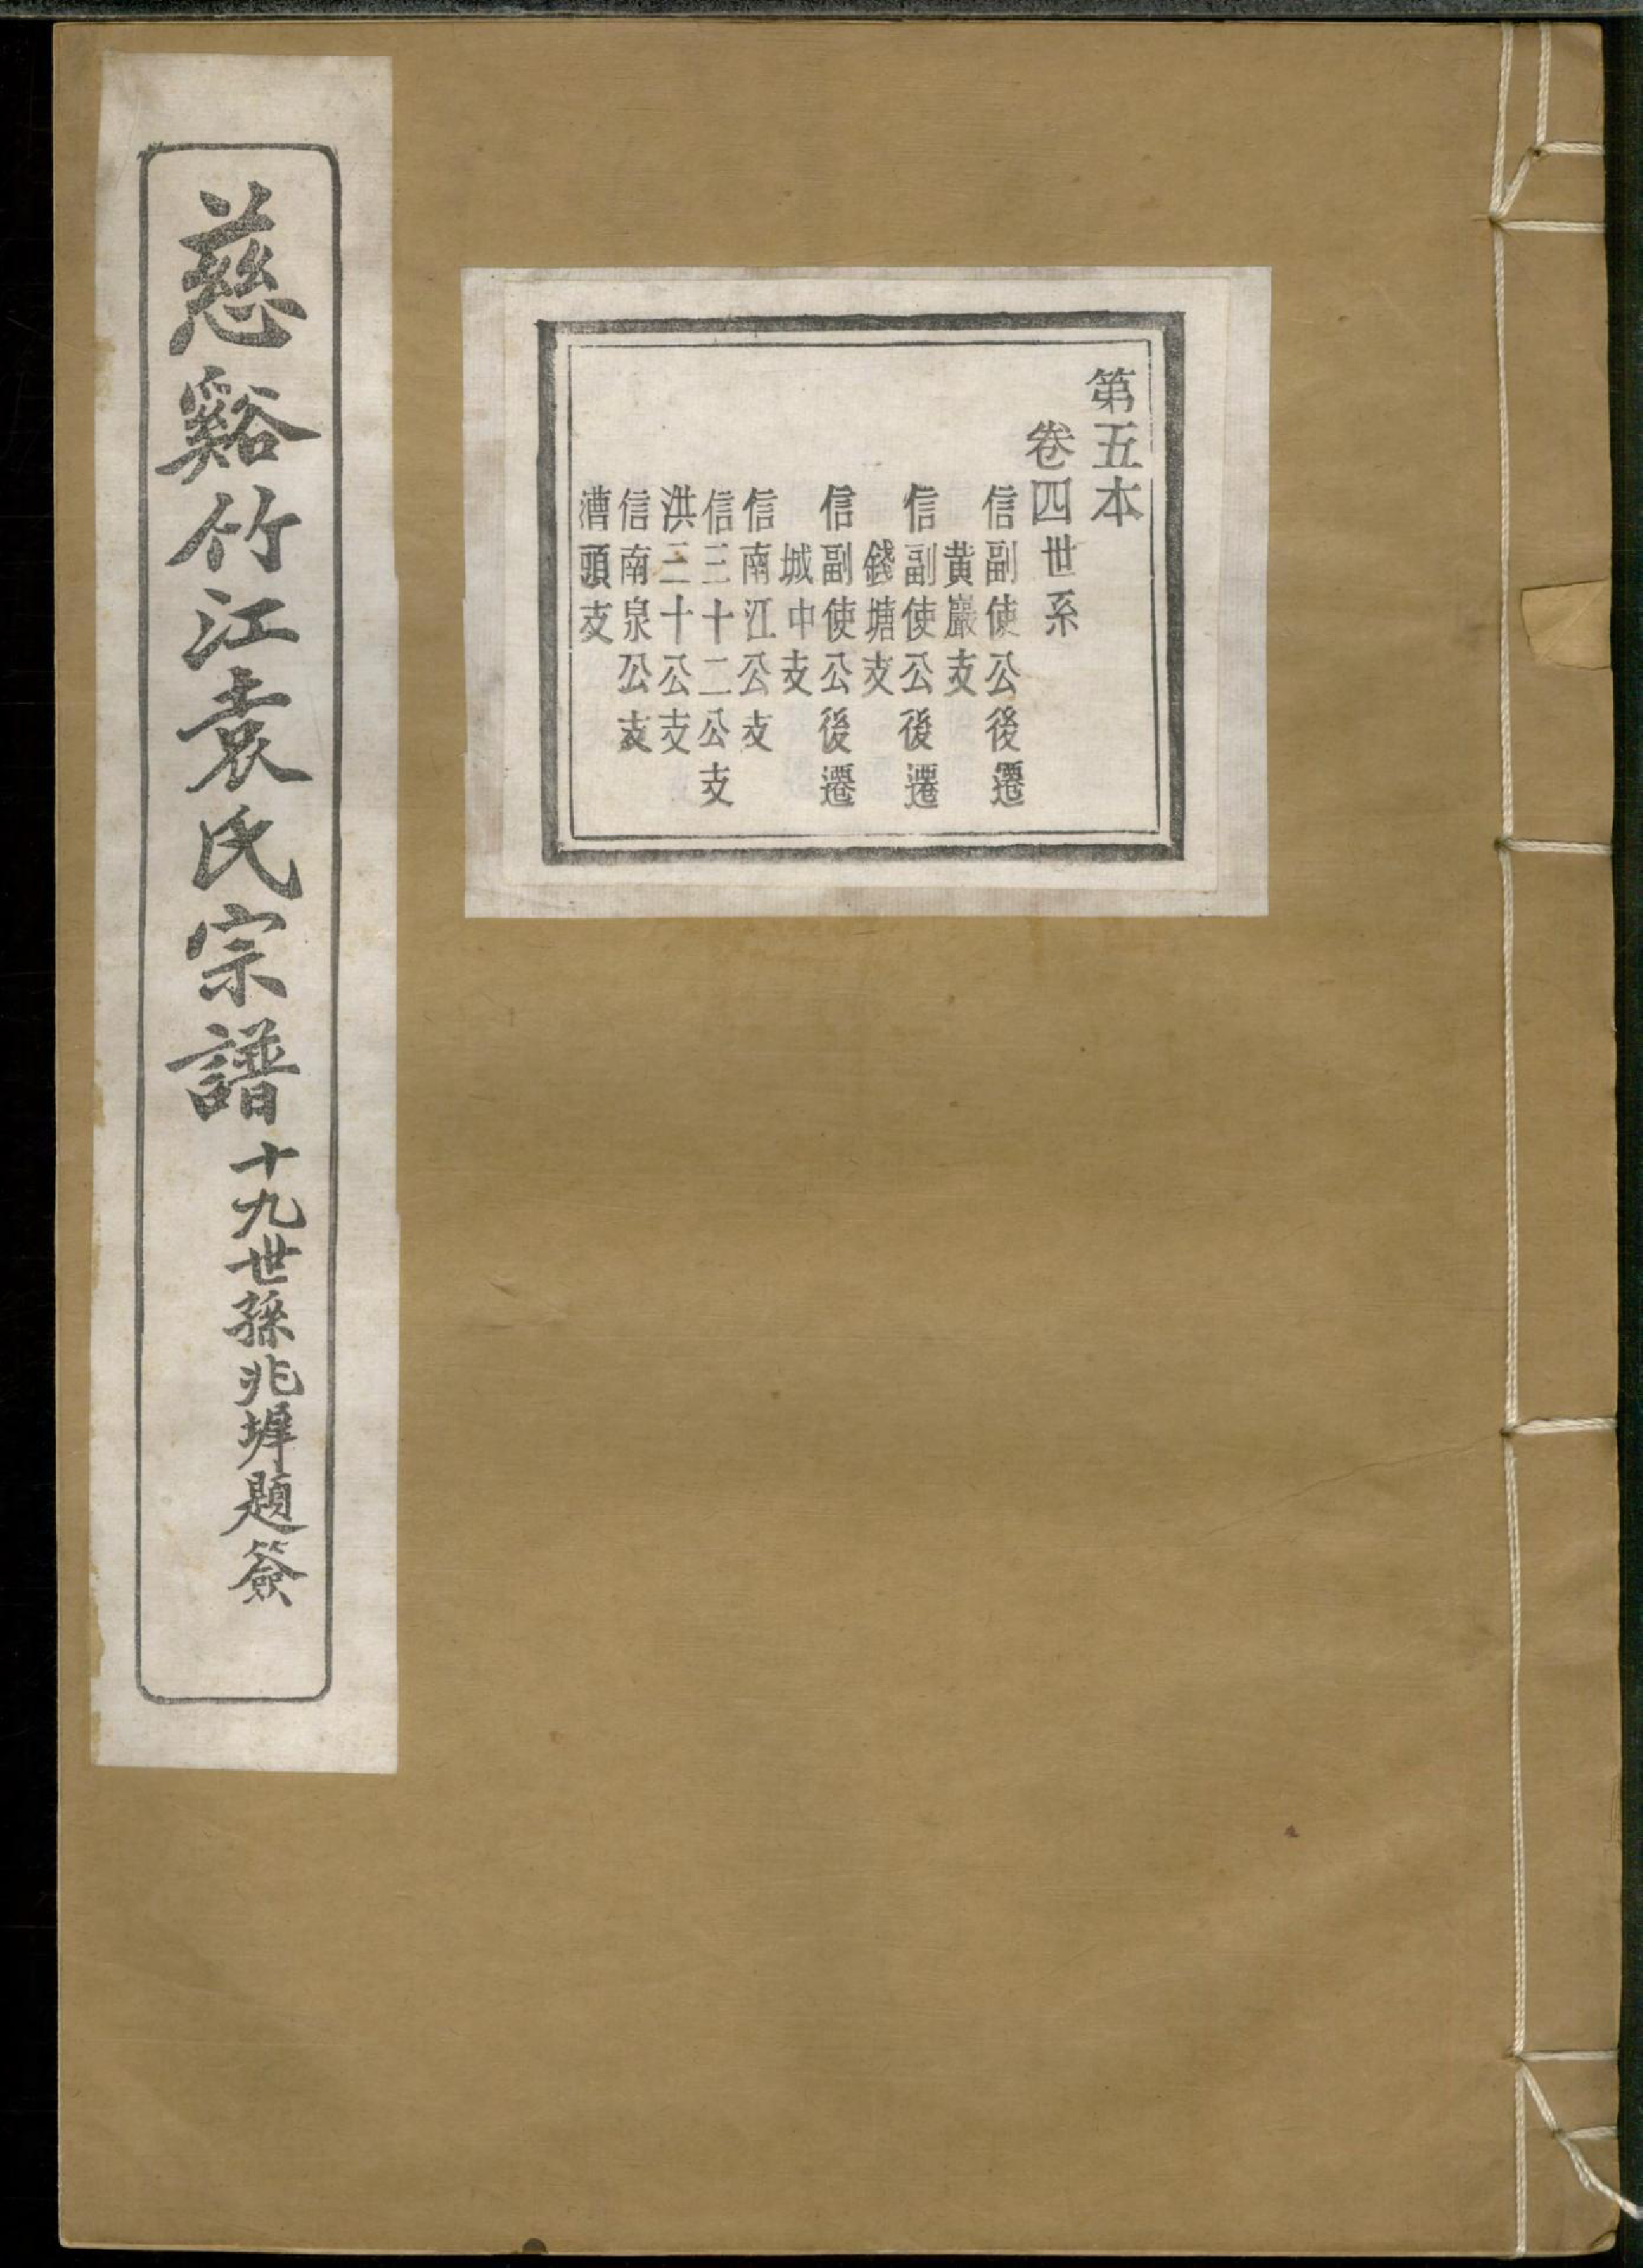 第五本
卷四世系
信副使公後遷
黃巖支
信副使公後遷
錢塘支
信副使公後遷
城中支
信南江公支
信三十二公支
洪二十公支
信南泉公支
漕頭支
慈谿竹江袁氏宗譜
十九世孫兆墀題簽